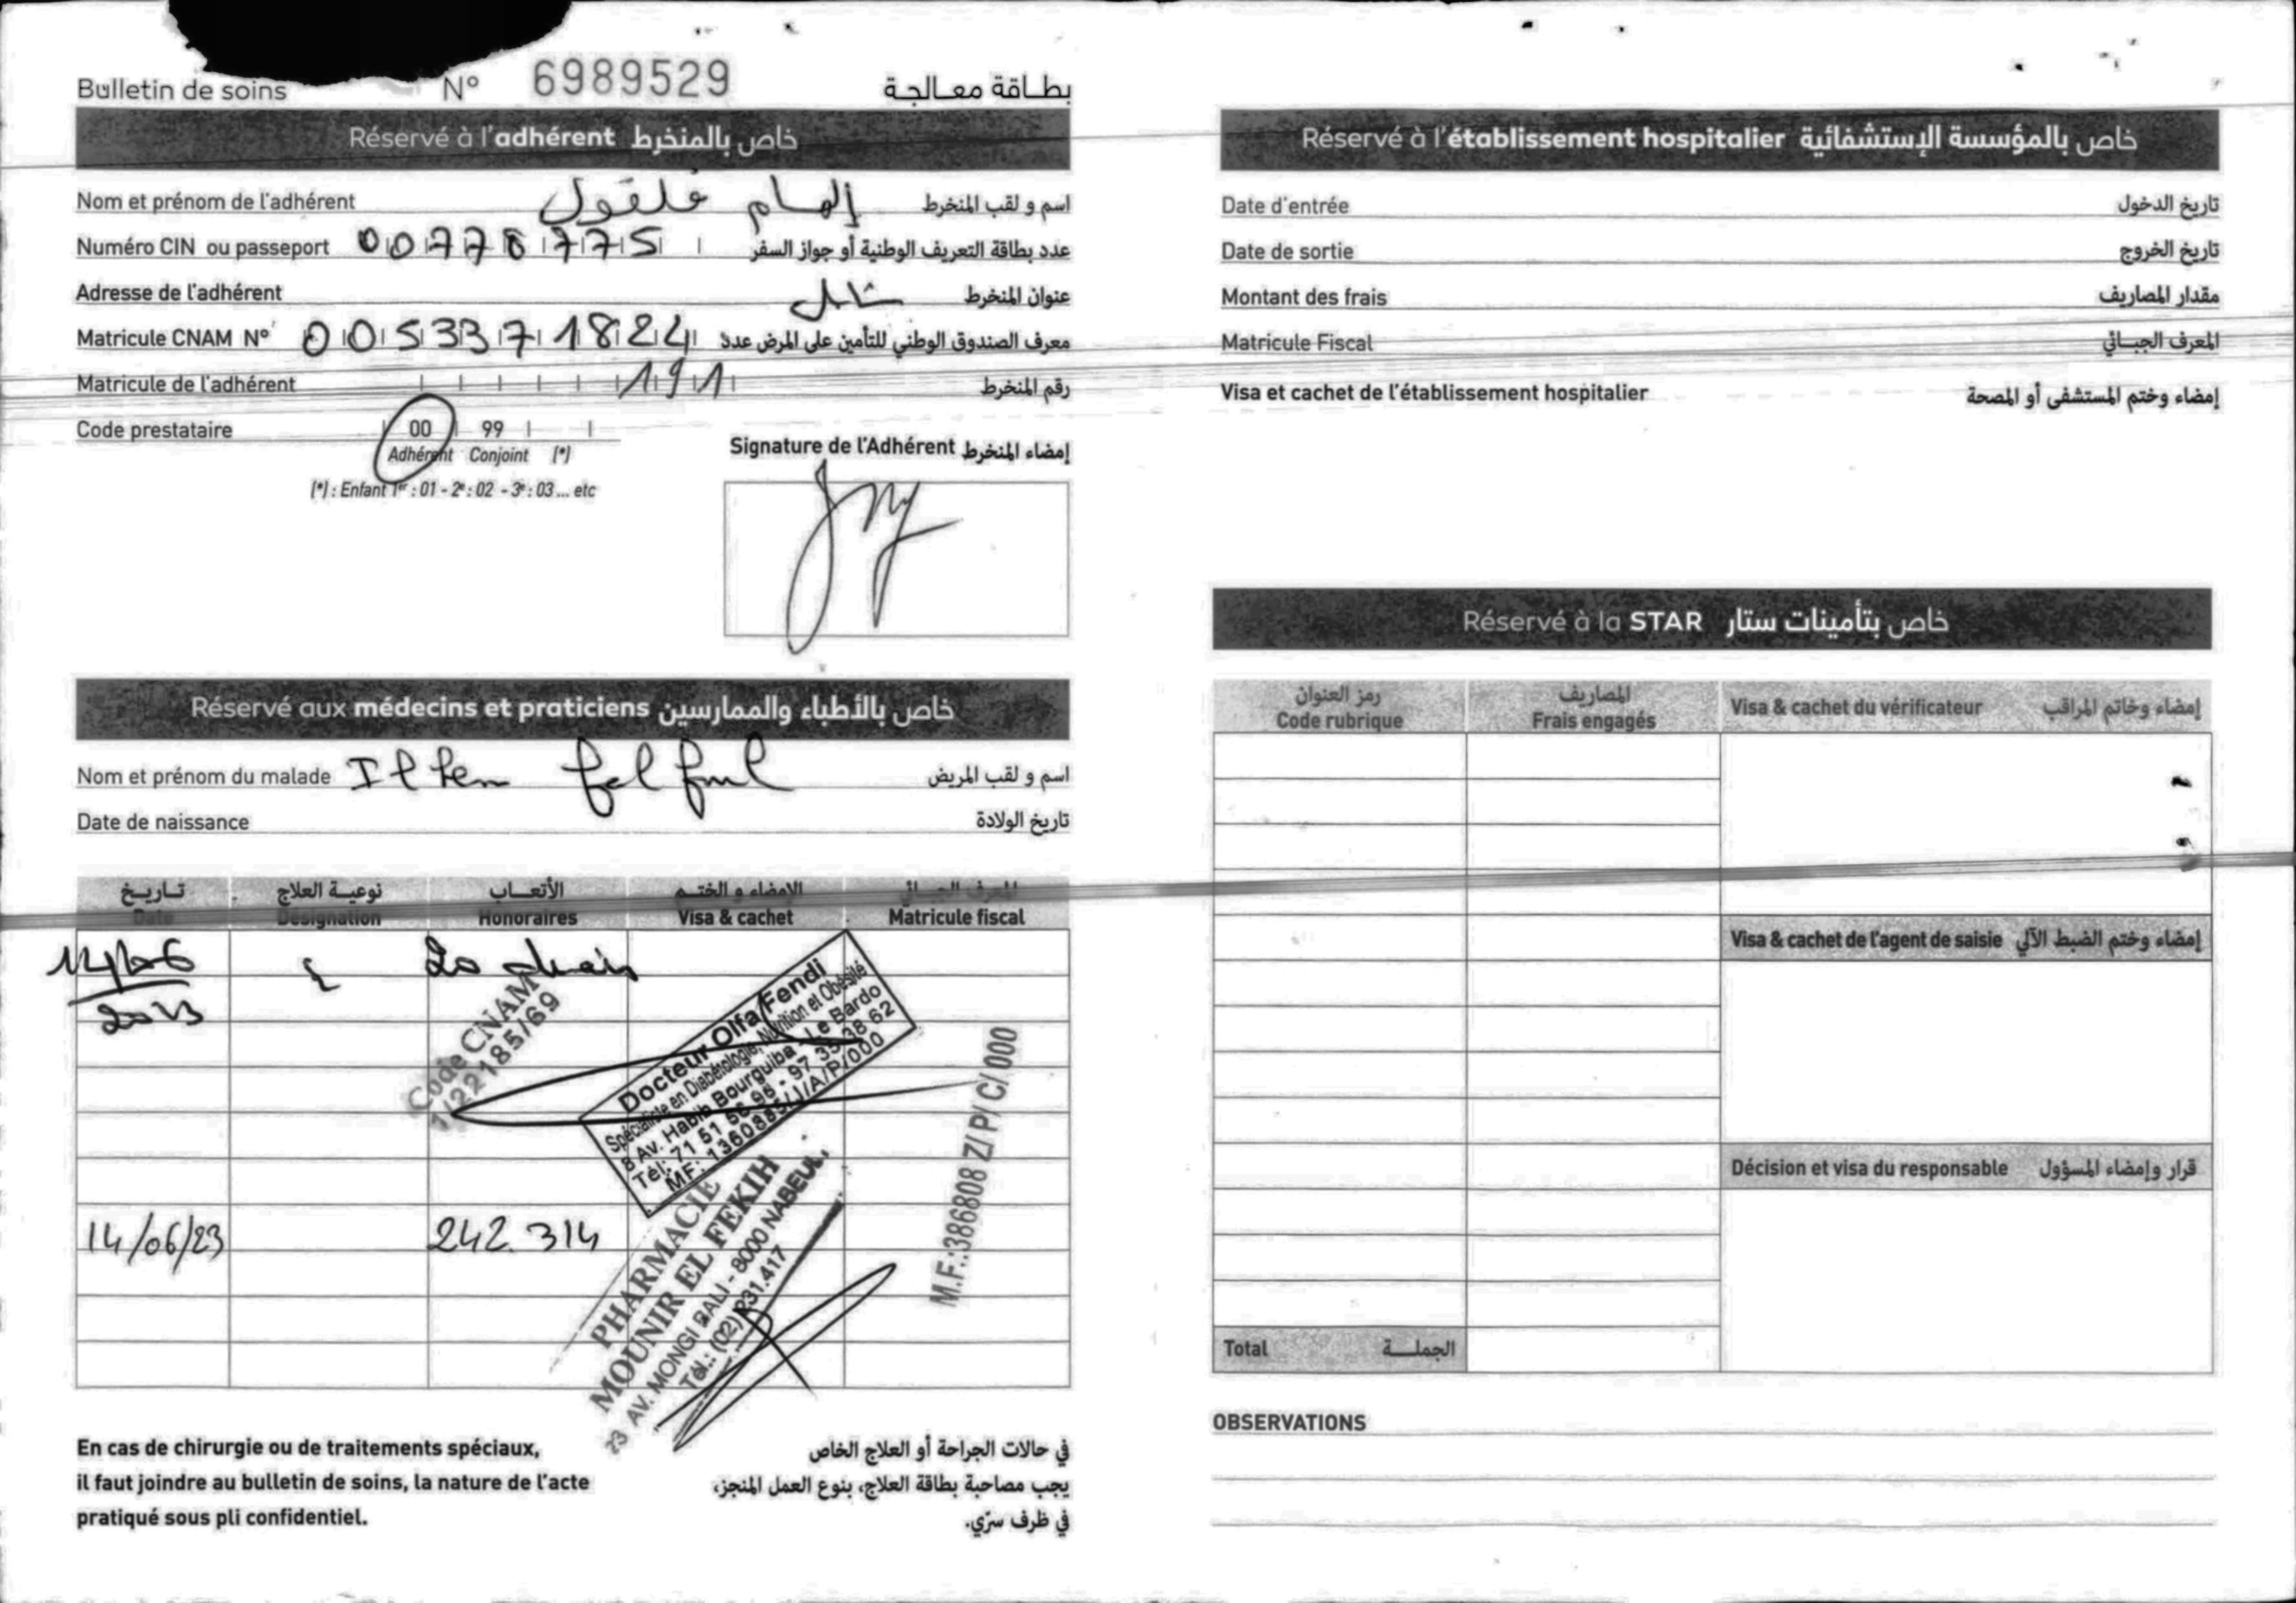 Bulletin de soins N° 6989529 بطاقة معالجة
Réservé à l'adhérent خاص بالمنخرط
Nom et prénom de l'adhérent إلهام فلفول اسم و لقب المنخرط
Numéro CIN ou passeport 00778775 عدد بطاقة التعريف الوطنية أو جواز السفر
Adresse de l'adhérent عنوان المنخرط
Matricule CNAM N° 005337 1824 معرف الصندوق الوطني للتأمين على المرض عدد
Matricule de l'adhérent 191 رقم المنخرط
Code prestataire 00 99
Adhérent Conjoint (*)
(*) : Enfant 1er : 01 - 2e : 02 - 3e : 03 ... etc
Signature de l'Adhérent إمضاء المنخرط
Réservé aux médecins et praticiens خاص بالأطباء والممارسين
Nom et prénom du malade Ilhem felfoul اسم و لقب المريض
Date de naissance تاريخ الولادة
تـاريـخ نوعيـة العلاج الأتعـــاب الإمضاء و الختـم المعرف الجبــائي
Date Désignation Honoraires Visa & cachet Matricule fiscal
14/06 20
2023
Code CNAM
1/22185/69
Docteur Olfa Fendi
Spécialiste en Diabétologie, Nutrition et Obésité
8 Av. Habib Bourguiba - Le Bardo
Tél: 71 51 66 95 - 97 35 38 62
MF: 1360885/J/A/P/000
14/06/23 242.314
PHARMACIE
MOUNIR EL FEKIH
23 AV. MONGI BALI - 8000 NABEUL
Tél.: (02) 231.417
M.F.:386808 Z/P/C/000
En cas de chirurgie ou de traitements spéciaux,
il faut joindre au bulletin de soins, la nature de l'acte
pratiqué sous pli confidentiel.
في حالات الجراحة أو العلاج الخاص
يجب مصاحبة بطاقة العلاج، بنوع العمل المنجز،
في ظرف سرّي.
Réservé à l'établissement hospitalier خاص بالمؤسسة الإستشفائية
Date d'entrée تاريخ الدخول
Date de sortie تاريخ الخروج
Montant des frais مقدار المصاريف
Matricule Fiscal المعرف الجبــائي
Visa et cachet de l'établissement hospitalier إمضاء وختم المستشفى أو المصحة
Réservé à la STAR خاص بتأمينات ستار
رمز العنوان المصاريف
Code rubrique Frais engagés Visa & cachet du vérificateur إمضاء وخاتم المراقب
Visa & cachet de l'agent de saisie إمضاء وختم الضبط الآلي
Décision et visa du responsable قرار وإمضاء المسؤول
Total الجملــــة
OBSERVATIONS